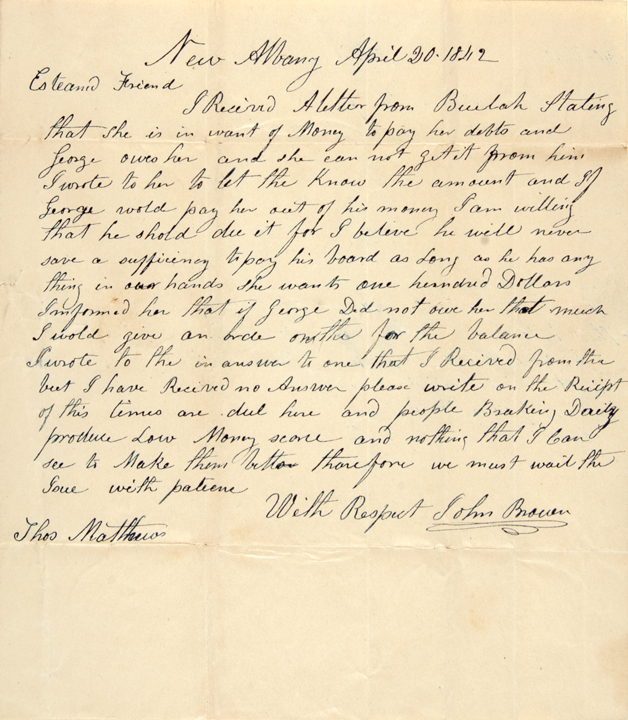 New Albany April 20. 1842
Esteamd Friend
I Recived A letter from Beulah Stating
that she is in want of Money to pay her debts and
George owes her and she can not get it from him
I wrote to her to let the Know the amount and If
George wold pay her out of his money I am willing
that he shold due it for I beleve he will never
save a sufficiency to pay his board as Long as he has any
thing in our hands she wants one hendred Dollars
I informed her that if George Did not owe her that much
I wold give an orde on the for the balance
I wrote to the in answer to one that I Recived from the
but I have Recived no Answer please write on the Reicpt
of this times are dul here and people Braking Daily
produce Low Money scarce and nothing that I Can
see to Make them better therefore we must wait the
with patience
With Respect John Brown
Thos Matthews